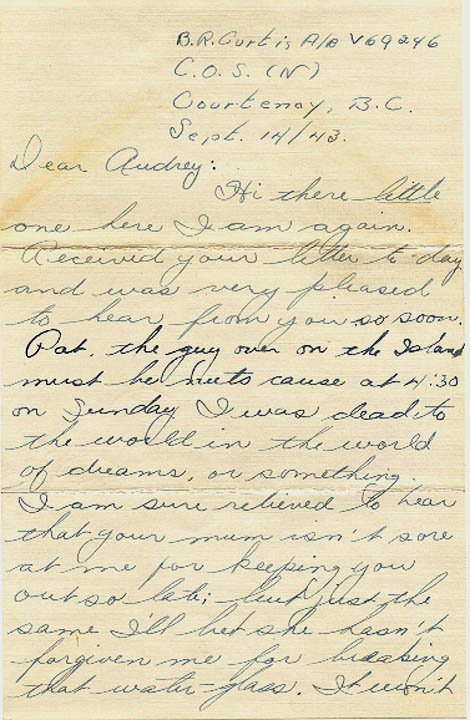 B.R. Curtis A/B V69246
C.O.S. (N)
Courtenay, B.C.
Sept. 14/43.
Dear Audrey:
Hi there little
one here I am again.
Received your letter to-day
and was very pleased
to hear from you so soon.
Pat, the guy over on the Island
must be nuts cause at 4:30
on Sunday I was dead to
the world in the world
of dreams, or something.
I am sure relieved to hear
that your mum isn't sore
at me for keeping you
out so late; but just the
same I'll bet she hasn't
forgiven me for breaking
that water-glass. It won't